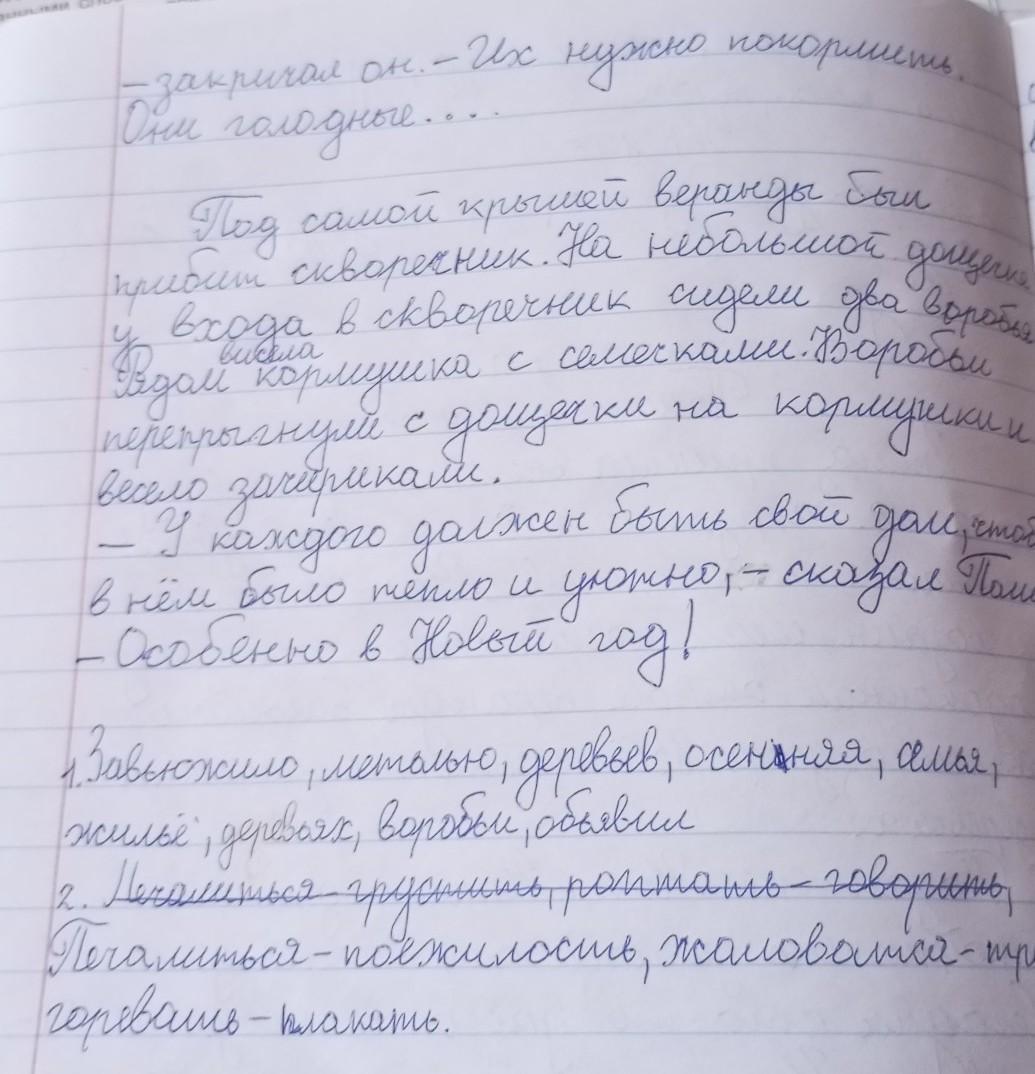 – закричал он. – Их нужно покормить.
Они голодные....
Под самой крышей веранды был
прибит скворечник. На небольшой дощечке
у входа в скворечник сидели два воробья
Рядом висела кормушка с семечками. Воробьи
перепрыгнули с дощечки на кормушки и
весело зачирикали.
– У каждого должен быть свой дом, чтоб
в нём было тепло и уютно, – сказал
– Особенно в Новый год!
1. Завьюжило, металью, деревьев, осенняя, семья,
жильё, деревьях, воробьи, обьявил
2. Печалиться – грустить, роптать – говорить,
Печалиться – поежилость, жаловатся –
горевать – плакать.